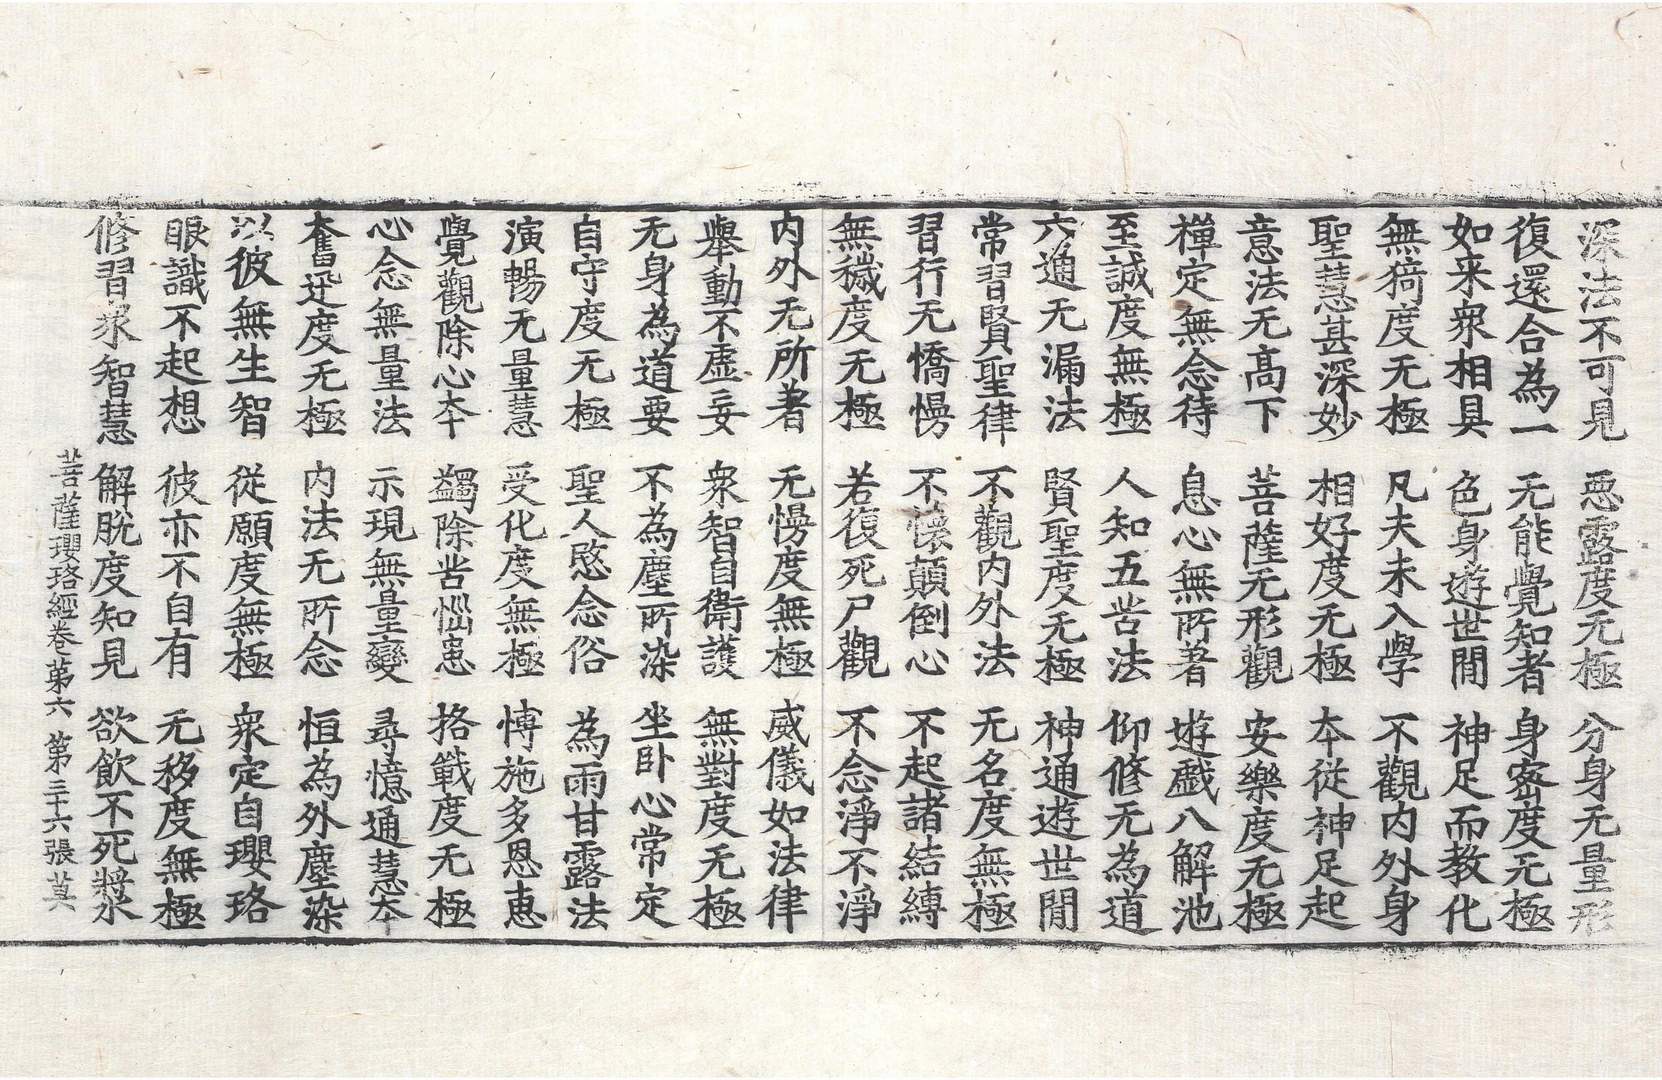 深法不可見 惡露度无極 分身无量形
復還合為一 无能覺知者 身密度无極
如来衆相具 色身遊世閒 神足而教化
無猗度无極 凡夫未入學 不觀内外身
聖慧甚深妙 相好度无極 本従神足起
意法无髙下 菩薩无形觀 安樂度无極
禪定無念待 息心無所著 遊戲八解池
至誠度無極 人知五苦法 仰修无為道
六通无漏法 賢聖度无極 神通遊世閒
常習賢聖律 不觀内外法 无名度無極
習行无憍慢 不懷顛倒心 不起諸結縛
無穢度无極 若復死尸觀 不念淨不淨
内外无所著 无慢度無極 威儀如法律
舉動不虛妄 衆智自衛護 無對度无極
无身為道要 不為塵所染 坐卧心常定
自守度无極 聖人愍念俗 為雨甘露法
演暢无量慧 受化度無極 愽施多恩惠
覺觀除心本 蠲除苦惱患 挌戰度无極
心念無量法 示現無量變 尋憶通慧本
奮迅度无極 内法无所念 恒為外塵染
以彼無生智 從願度無極 衆定自瓔珞
眼識不起想 彼亦不自有 无移度無極
修習衆智慧 解脫度知見 欲飲不死漿
菩薩瓔珞經卷第六 第三十六張 莫